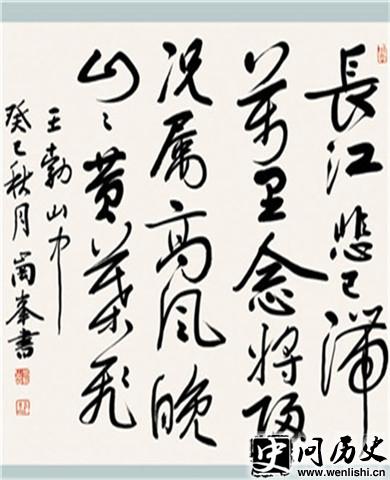 長江悲已滞
萬里念將歸
况属高风晚
山〻黄葉飛
王勃山中
癸巳秋月峯書
问历史
www.wenlishi.cn